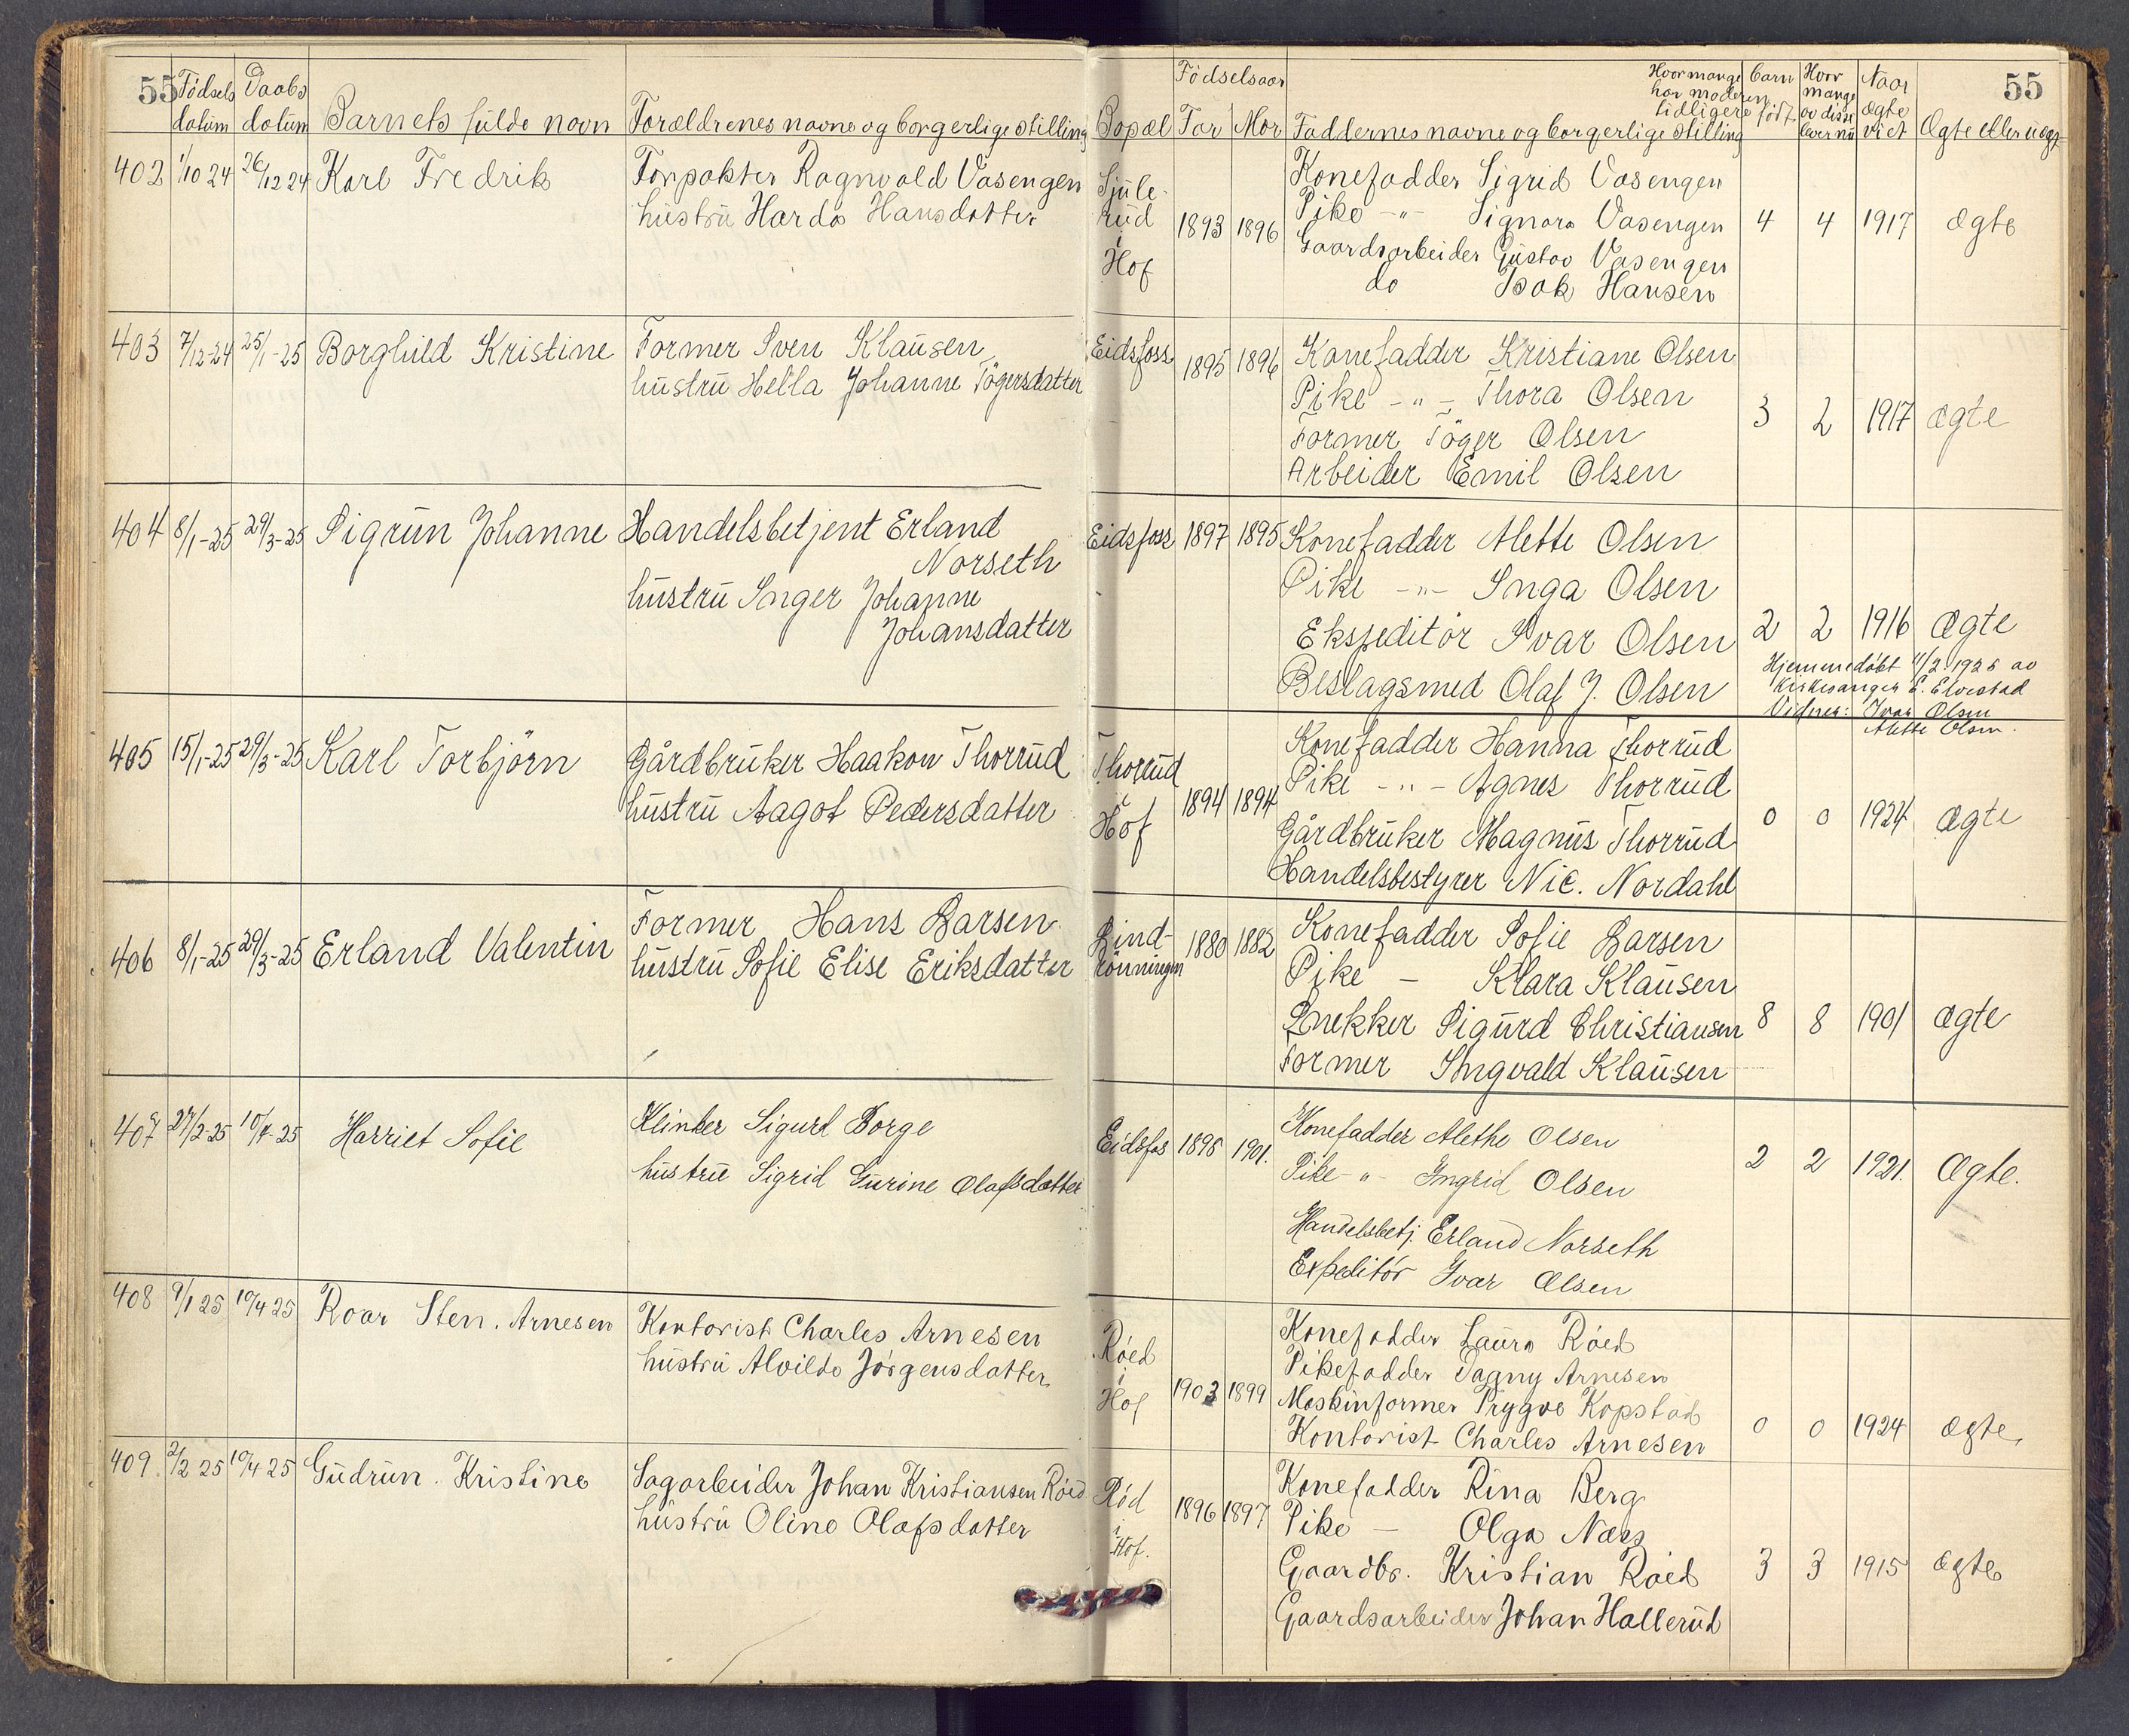 55 Fødsels datum Daabs datum Barnets fulde navn Forældrenes navne og borgerlige stilling Bopæl Fødselsaar Far Mor Faddernes navne og borgerlige stilling Hvor mange barn har moderen tidligere født Hvor mange av disse lever nu Naar ægte viet Ægte eller uægte 55
402 1/10 24 26/12 24 Karl Fredrik Forpakter Ragnvald Vasengen Sjule- Konefadder Sigrid Vasengen
hustru Harda Hansdatter rud 1893 1896 Pike -"- Signora Vasengen 4 4 1917 ægte
i Gaardsarbeider Gustav Vasengen
Hof do Isak Hansen
403 7/12-24 25/1-25 Borghild Kristine Former Sven Klausen Eidsfoss 1895 1896 Konefadder Kristiane Olsen
hustru Hella Johanne Tögersdatter Pike -"- Thora Olsen
Former Töger Olsen 3 2 1917 ægte
Arbeider Emil Olsen
404 8/1-25 29/3-25 Sigrun Johanne Handelsbetjent Erland Eidsfoss 1897 1895 Konefadder Alette Olsen
Norseth Pike -"- Inga Olsen
hustru Inger Johanne Ekspeditör Ivar Olsen 2 2 1916 ægte
Johansdatter Beslagsmed Olaf J. Olsen
Hjemmedøbt 11/2 1925 av
Kirkesanger E. Elvestad
Vidner: Ivar Olsen
Alette Olsen.
405 15/1-25 29/3-25 Karl Torbjörn Gårdbruker Haakon Thorrud Thorrud Konefadder Hanna Thorrud
hustru Aagot Pedersdatter i 1894 1894 Pike -"- Agnes Thorrud
Hof Gårdbruker Magnus Thorrud 0 0 1924 ægte
Handelsbestyrer Nic. Nordahl
406 8/1-25 29/3-25 Erland Valentin Former Hans Larsen Lind- 1880 1882 Konefadder Sofie Larsen
hustru Sofie Elise Eriksdatter rönningen Pike - Klara Klausen
Snekker Sigurd Christiansen 8 8 1901 ægte
Former Ingvald Klausen
407 27/2-25 10/4-25 Harriet Sofie Klinker Sigurd Borge Eidsfos 1898 1901. Konefadder Alethe Olsen
hustru Sigrid Gurine Olafsdatter Pike -"- Ingrid Olsen 2 2 1921. Ægte.
Handelsbetj. Erland Norseth
Expeditör Ivar Olsen
408 9/1 25 10/4 25 Roar Sten. Arnesen Kontorist Charles Arnesen Röed Konefadder Laura Röed
hustru Alvilde Jörgensdatter i Pikefadder Dagny Arnesen
Hof 1903 1899 Maskinformer Trygve Kopstad
Kontorist Charles Arnesen 0 0 1924 ægte,
409. 2/2 25 10/4 25 Gudrun. Kristine Sagarbeider Johan Kristiansen Röed Röd 1896 1897 Konefadder Rina Berg
hustru Oline Olafsdatter i Pike - Olga Næss
Hof. Gaardbr. Kristian Röed 3 3 1915 ægte
Gaardsarbeider Johan Hallerud